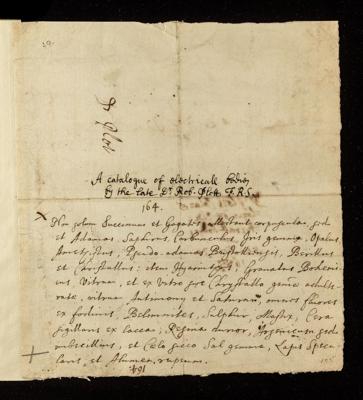 Dr Plot
A catalogue of electricall bodies
by the late Dr. Rob. Plott F.R.S.
164.
Non solum Succinum et Gagates attrahunt corpuscula, sed
et Adamas, Saphirus, Carbunculus, Iris gemma, Opalus,
Amethistus, Pseudo-adamas Bristollensis, Berillus
et Christallus: item Granatus Bohemi-
cus, Vitrum, et ex Vitro sive Chrystallo gemmæ adulte-
ratæ, vitrum Antimony et Saturni, omnes fluores
ex fodinis, Belemnites, Sulphur, Mastix, Cera
sigillaris ex laccea, Resina durior, Arsenicum sed
imbecillius, et Cœlo sicco Sal gemma, Lapis Specu-
laris, et Alumen rupeum.
164